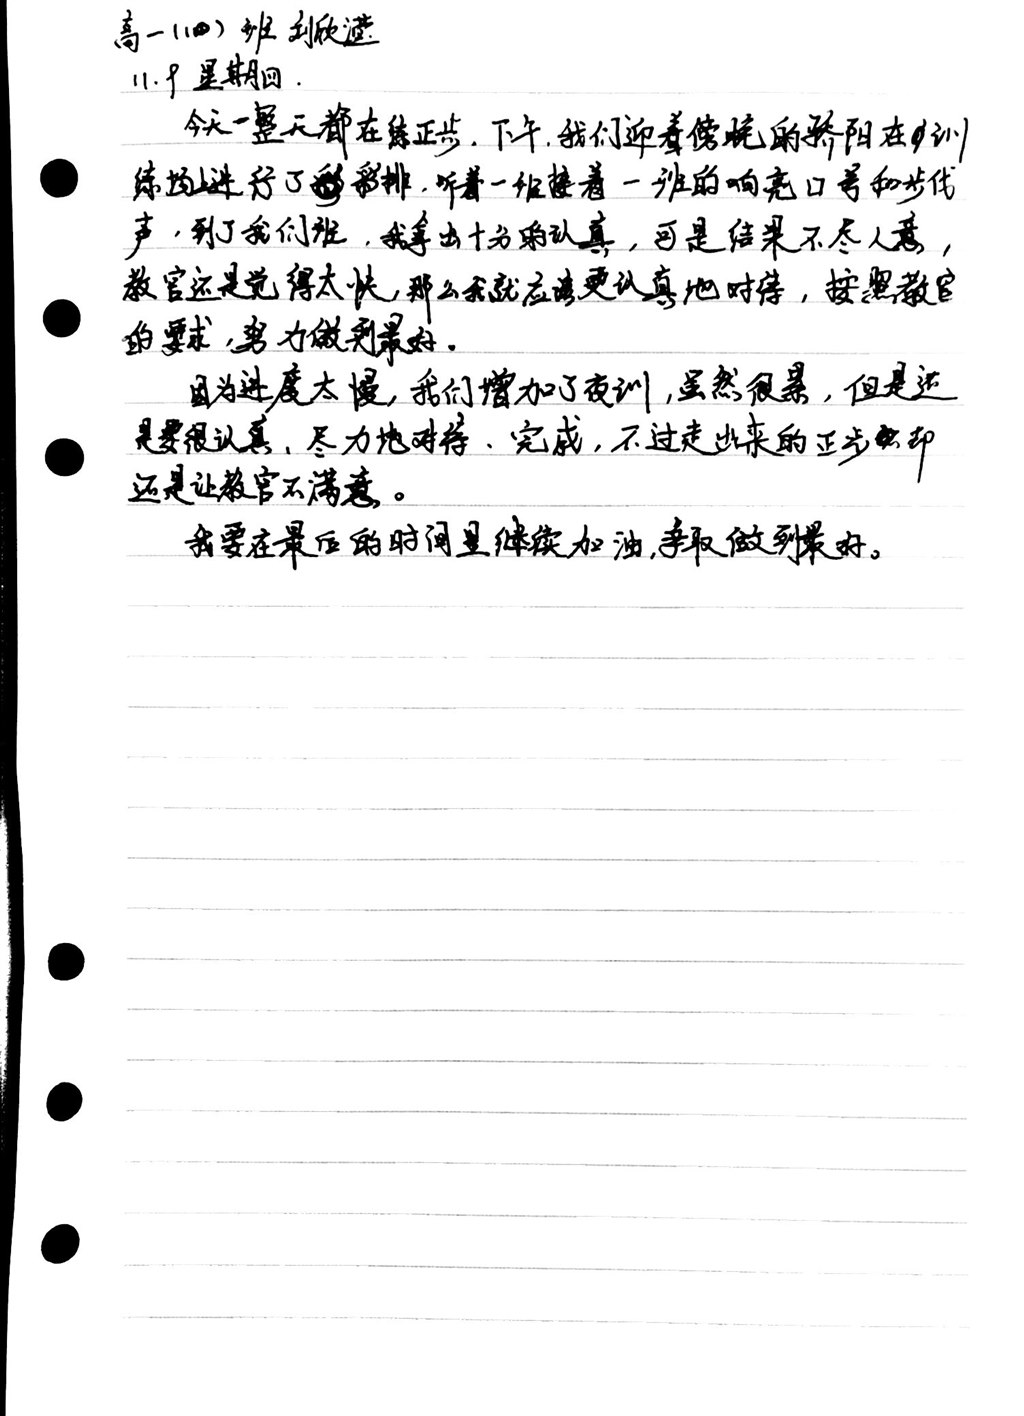 高一(四)班 刘欣滢
11.9 星期四.
今天一整天都在练正步.下午.我们迎着傍晚的骄阳在训
练场上进行了彩排.听着一班接着一班的响亮口号和步伐
声,到了我们班,我拿出十分的认真,可是结果不尽人意,
教官还是觉得太快,那么我就应该更认真地对待,按照教官
的要求,努力做到最好。
因为进度太慢,我们增加了夜训,虽然很累,但是还
是要很认真、尽力地对待、完成,不过走出来的正步却
还是让教官不满意。
我要在最后的时间里继续加油,争取做到最好。